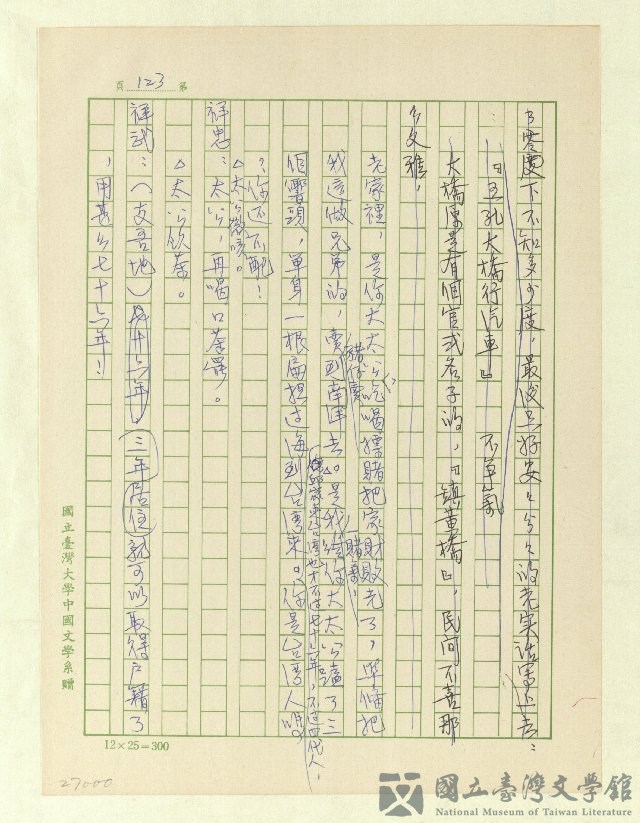 第 123 頁
不知多少度，最後只好安安分分的老實話寫上去：
「五孔大橋行汽車」 不單氣
大橋原是有個官式名子的，「鎮黃橋」，民間不喜那
么文雅，
老家裡，是你太太公吃喝嫖賭把家財敗光了，準備把
我這做兄弟的，賣到南洋去。是我給你太太公磕了三
豬仔賣
賭弟，
個響頭，單身一根扁担过海到台湾來。你是台湾人嗎
？你还不配！
△太公微嗔。
祥忠：太公，再喝口茶罢。
△太公飲茶。
祥武：（支吾地）七十六年，三年居住就可以取得戶籍了
，用甚么七十六年！
12×25=300
國立臺灣大學中國文學系贈
27000
國立臺灣文學館
National Museum of Taiwan Literature